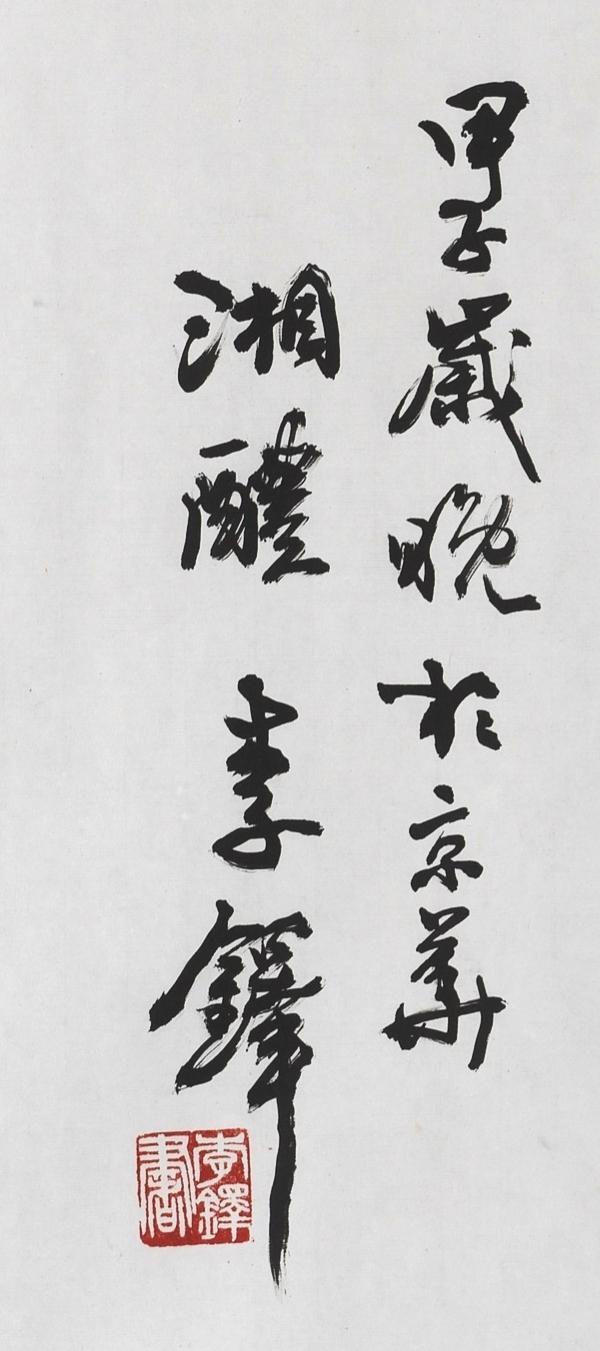 甲子歲晚於京華
湘醴李鐸
李鐸書